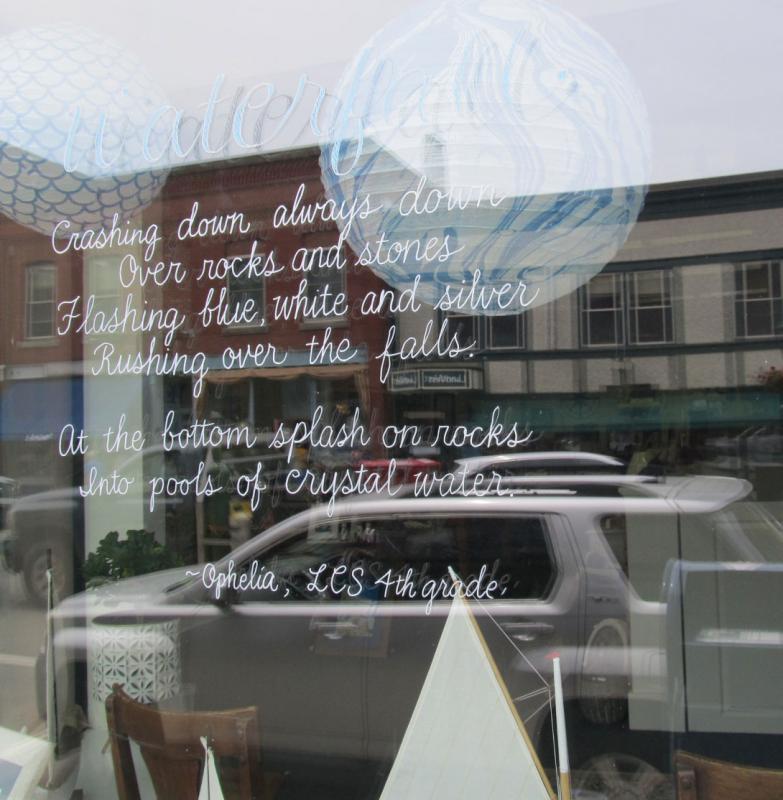 Waterfall
Crashing down always down
Over rocks and stones
Flashing blue, white and silver
Rushing over the falls.
At the bottom splash on rocks
Into pools of crystal water.
~Ophelia, LCS 4th grade.